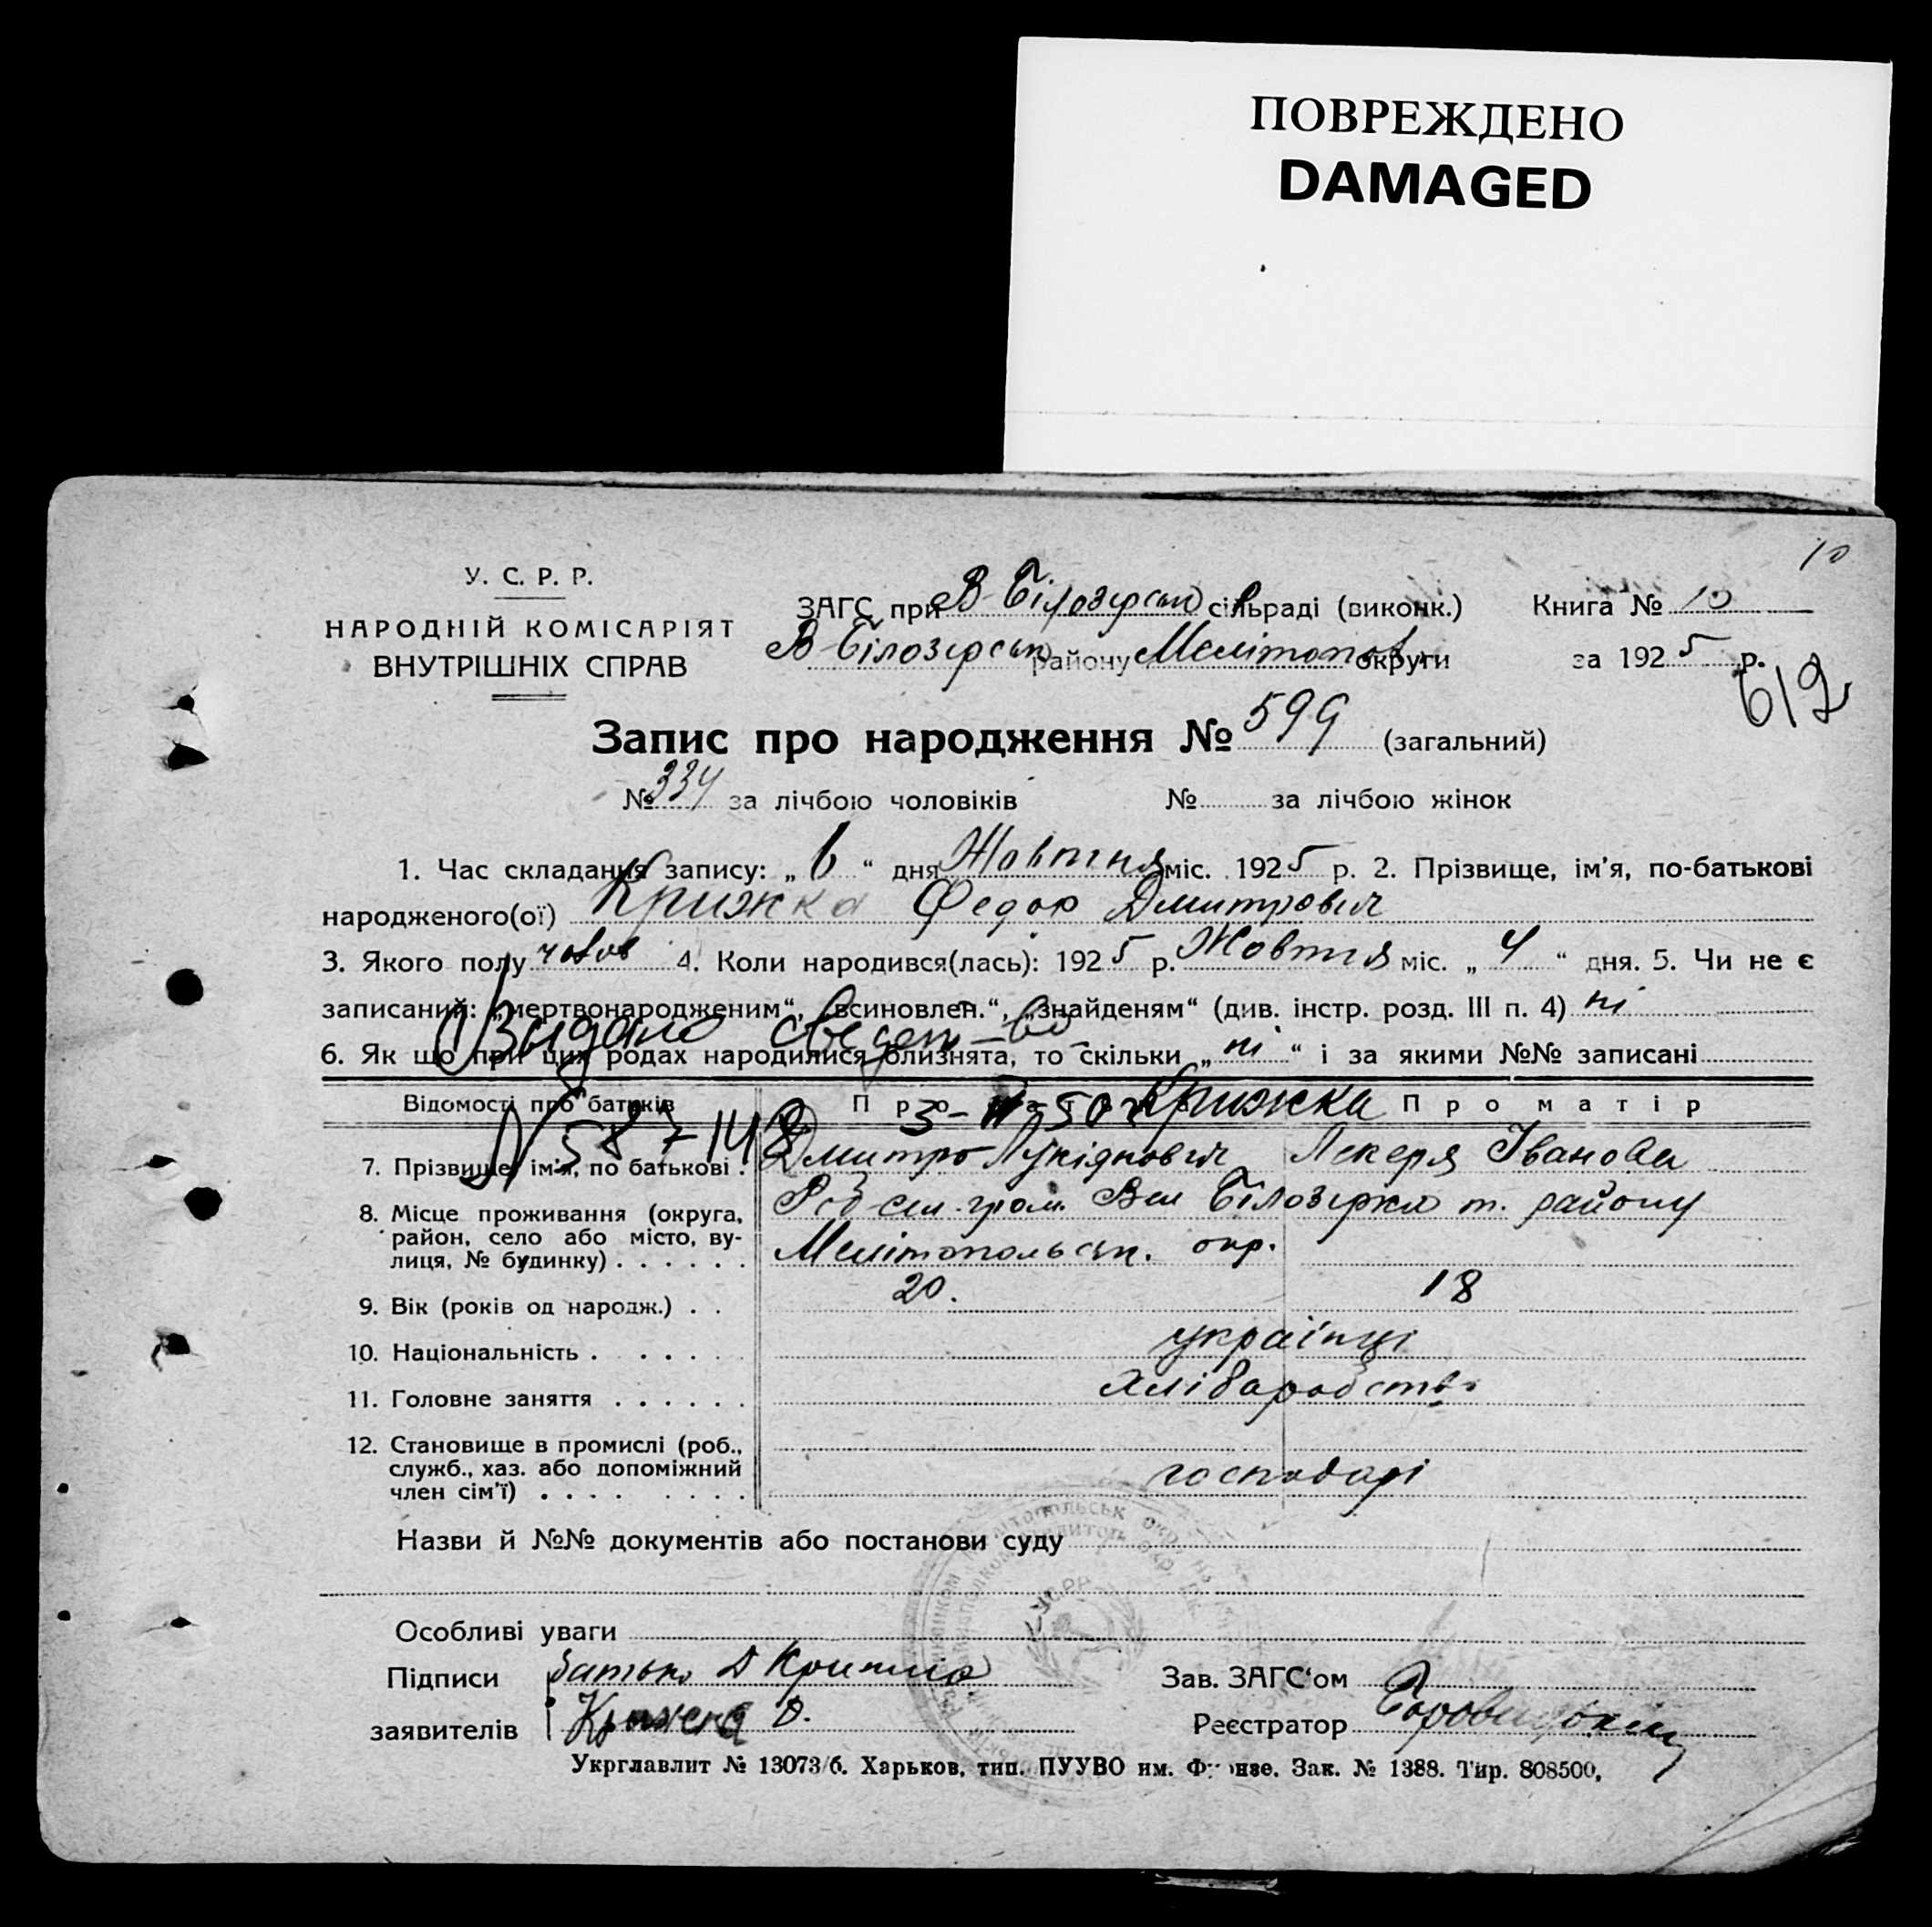 ПОВРЕЖДЕНО
DAMAGED
10
У. С. Р. Р.
НАРОДНІЙ КОМІСАРІЯТ
ВНУТРІШНІХ СПРАВ
ЗАГС при В-Білозерськ сільраді (виконк.)
В-Білозерськ району Мелітопол округи
Книга № 10
за 1925 р.
612
Запис про народження № 599 (загальний)
№ 334 за лічбою чоловіків № за лічбою жінок
1. Час складання запису: „ 6 “ дня Жовтня міс. 1925 р. 2. Прізвище, ім’я, по-батькові
народженого(ої) Крижка Федор Дмитрович
3. Якого полу чолов 4. Коли народився(лась): 1925 р. Жовтня міс. „ 4 “ дня. 5. Чи не є
записаний: „мертвонародженим“, „всиновлен.“, „знайденям“ (див. інстр. розд. III п. 4) ні
Выдано свидет-во
6. Як що при цих родах народилися близнята, то скільки „ ні “ і за якими №№ записані
Відомості про батьків Про батька Крижка Про матір
7. Прізвище, ім’я, по батькові . Дмитро Лукіянович Лекеря Іванова
8. Місце проживання (округа, район, село або місто, ву-
лиця, № будинку) . . . . . .
сел. гром. Вел Білозерка т. району
Мелітопольськ. окр.
9. Вік (років од народж.) . . 20. 18
10. Національність . . . . . . українці
11. Головне заняття . . . . . . хліборобство
12. Становище в промислі (роб.,
служб., хаз. або допоміжний
член сім’ї) . . . . . . . . господарі
Назви й №№ документів або постанови суду
Особливі уваги
Підписи батько Д Крижка Зав. ЗАГС‘ом
заявителів Крижка Д. Реєстратор
УСРР
Укрглавлит № 13073/б. Харьков, тип. ПУУВО им. Фрунзе. Зак. № 1388. Тир. 808500,